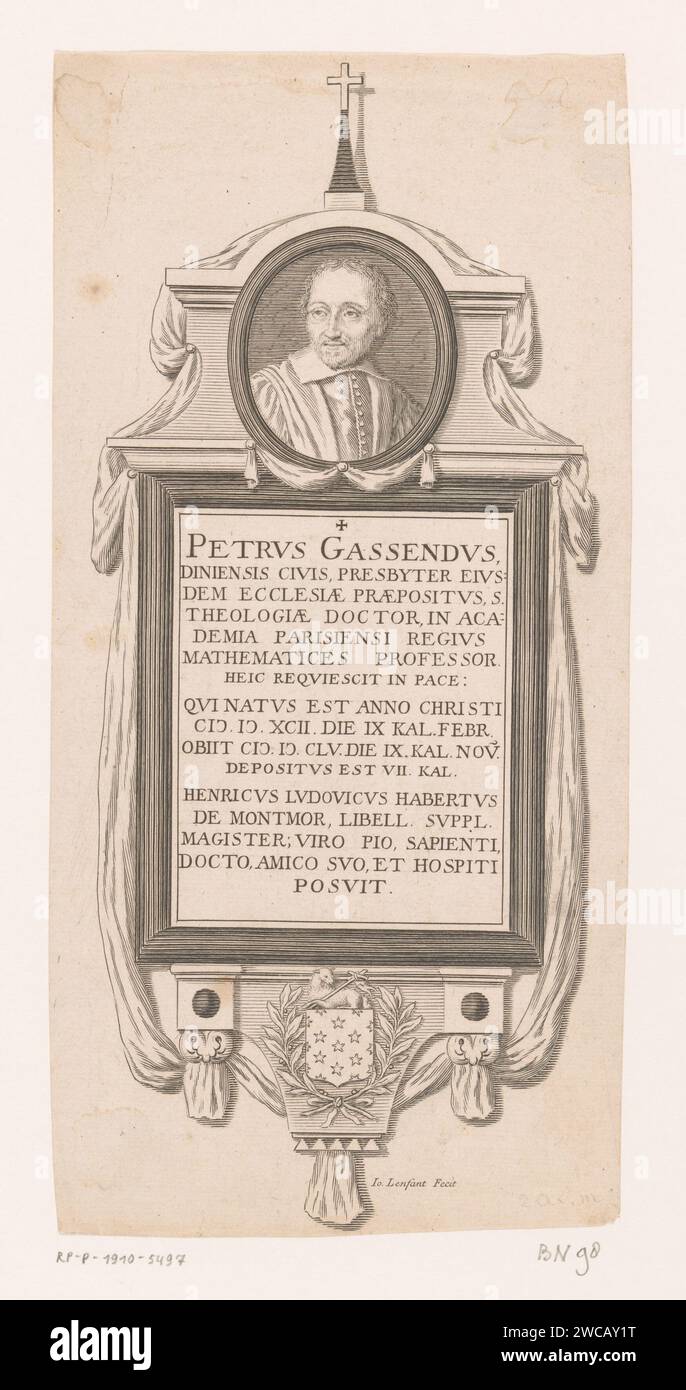 ✠
PETRVS GASSENDVS,
DINIENSIS CIVIS, PRESBYTER EIVS=
DEM ECCLESIÆ PRÆPOSITVS, S.
THEOLOGIÆ DOCTOR, IN ACA=
DEMIA PARISIENSI REGIVS
MATHEMATICES PROFESSOR.
HEIC REQVIESCIT IN PACE:
QVI NATVS EST ANNO CHRISTI
CIƆ. IƆ. XCII. DIE IX KAL. FEBR.
OBIIT CIƆ. IƆ. CLV. DIE IX. KAL. NOṼ.
DEPOSITVS EST VII. KAL.
HENRICVS LVDOVICVS HABERTVS
DE MONTMOR, LIBELL. SVPPL.
MAGISTER; VIRO PIO, SAPIENTI,
DOCTO, AMICO SVO, ET HOSPITI
POSVIT.
Io. Lenfant Fecit
RP-P-1910-5497
BN 98
alamy
Image ID: 2WCAY1T
www.alamy.com